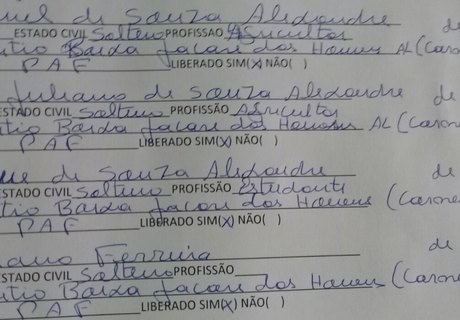 de Souza Alexandre de
ESTADO CIVIL Solteiro PROFISSÃO Agricultor
Baixa Jacaré dos Homens AL (Carone
PAF LIBERADO SIM(X) NÃO( )
Juliano de Souza Alexandre de
ESTADO CIVIL Solteiro PROFISSÃO Agricultor
Baixa Jacaré dos Homens AL (Carone
PAF LIBERADO SIM(X) NÃO( )
de Souza Alexandre de
ESTADO CIVIL Solteiro PROFISSÃO Estudante
Baixa Jacaré dos Homens (Carone
PAF LIBERADO SIM(X) NÃO( )
Ferreira de
ESTADO CIVIL Solteiro PROFISSÃO
Baixa Jacaré dos Homens (Carone
PAF LIBERADO SIM(X) NÃO( )